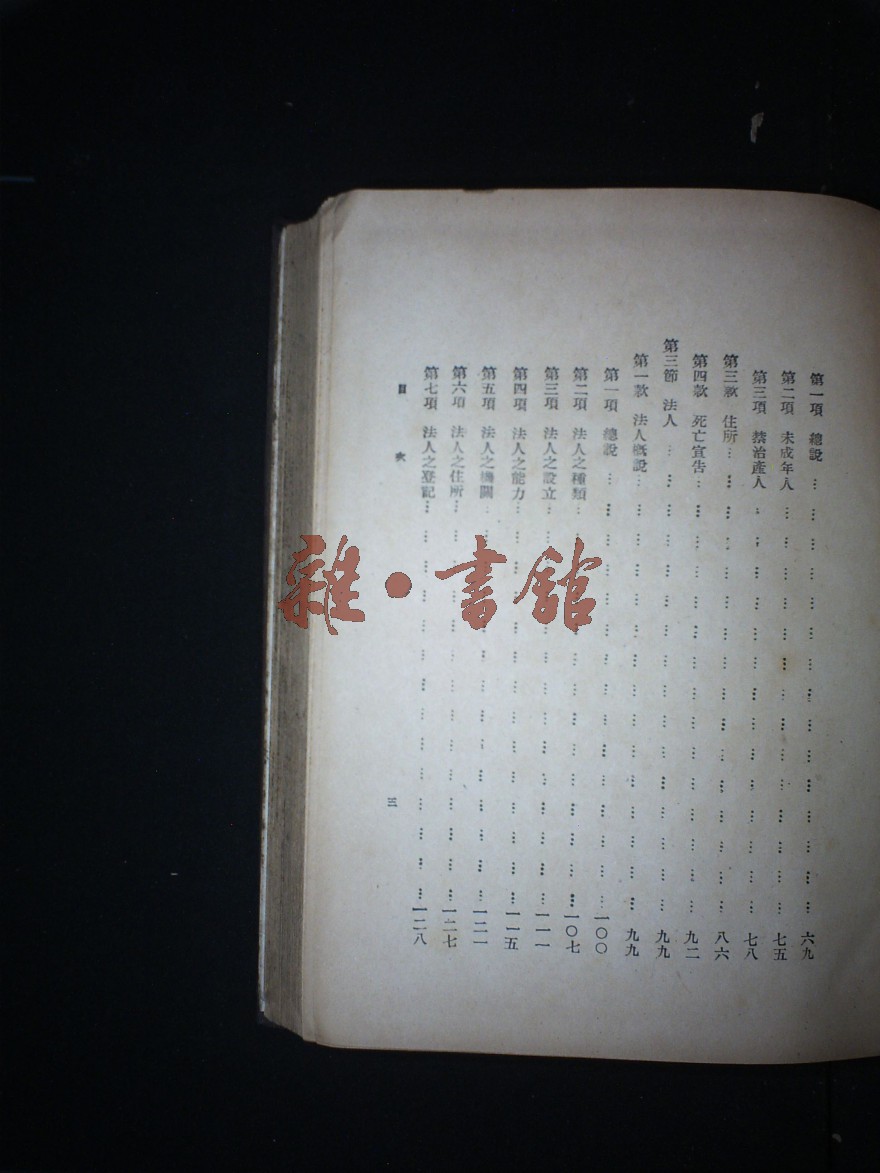 第一項 總說 … 六九
第二項 未成年人 … 七五
第三項 禁治產人 … 七八
第三款 住所 … 八六
第四款 死亡宣告 … 九二
第三節 法人 … 九九
第一款 法人概說 … 九九
第一項 總說 … 一〇〇
第二項 法人之種類 … 一〇七
第三項 法人之設立 … 一一一
第四項 法人之能力 … 一一五
第五項 法人之機關 … 一二一
第六項 法人之住所 … 一二七
第七項 法人之登記 … 一二八
目次
三
雜·書館